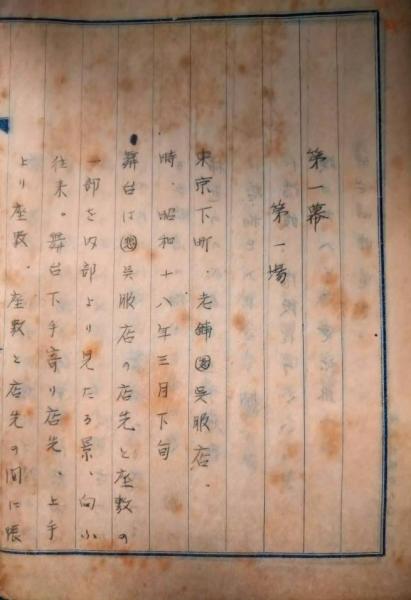 第一幕
第一場
東京下町、老舗呉服店。
時、昭和十八年三月下旬
舞台は呉服店の店先と座敷の
一部を内部より見たる景、向ふ
往来。舞台下手寄り店先、上手
より座敷、座敷と店先の間に帳